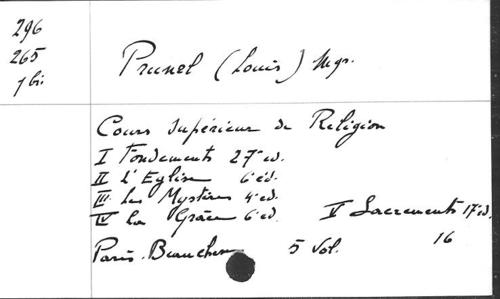 296
265
7 bis
Prunel (Louis) Mgr.
Cours Supérieur de Religion
I Fondements 27e ed.
II L'Eglise 6e ed.
III Les Mystères 4e ed.
IV La Grâce 6e ed. V Sacrements 17e ed.
Paris. Beauchesne 5 vol. 16